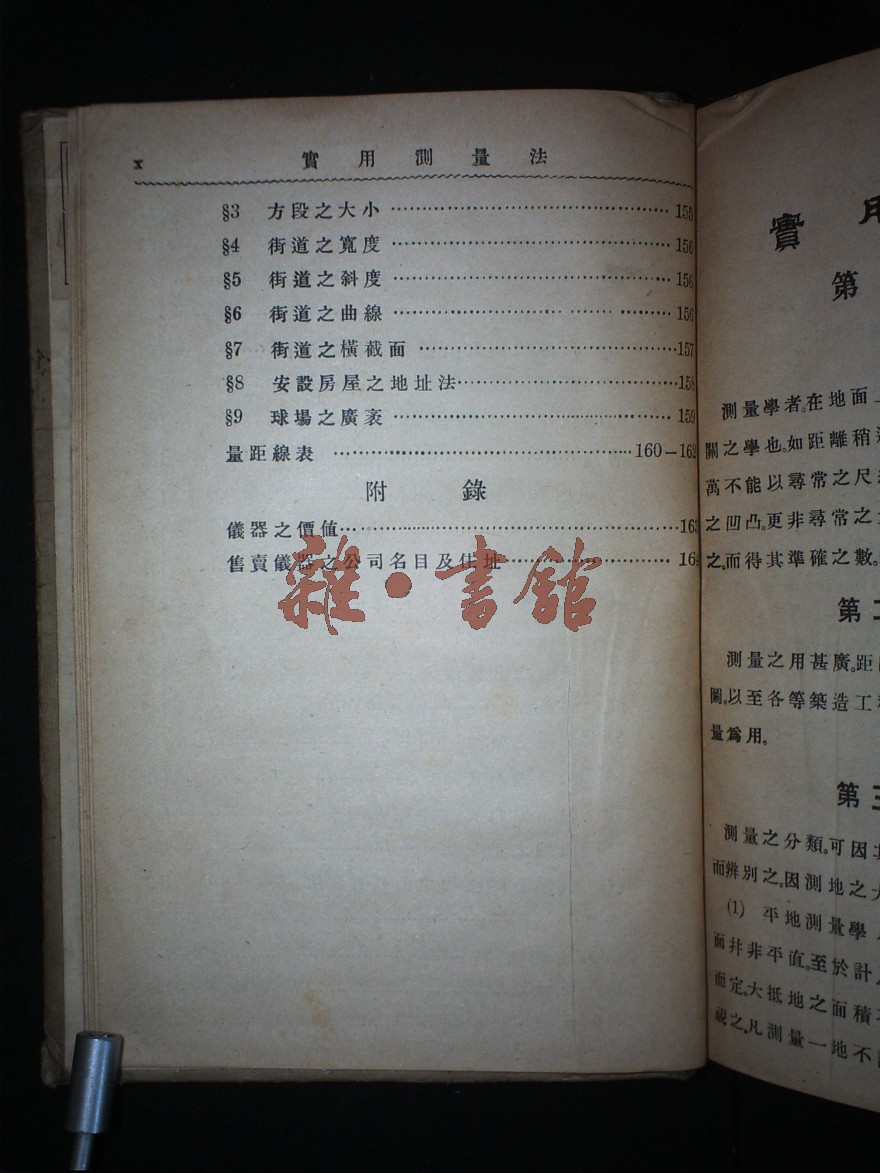 x 實用測量法
§3 方段之大小 155
§4 街道之寬度 156
§5 街道之斜度 156
§6 街道之曲線 156
§7 街道之橫截面 157
§8 安設房屋之地址法 158
§9 球場之廣袤 159
量距線表 160–162
附錄
儀器之價值 163
售賣儀器之公司名目及住址 164
雜·書館
實用
第
測量學者。在地面
關之學也。如距離稍
萬不能以尋常之尺
之凹凸。更非尋常之
之。而得其準確之數。
第二
測量之用甚廣。距
圖。以至各等築造工
量爲用。
第三
測量之分類。可因
而辨別之。因測地之
(1) 平地測量學
面幷非平直。至於計
而定。大抵地之面積
視之。凡測量一地不